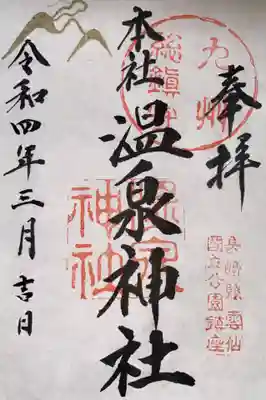 奉拝
九州
総鎮守
長崎縣雲仙
国立公園鎮座
本社温泉神社
温泉
神社
令和四年三月吉日